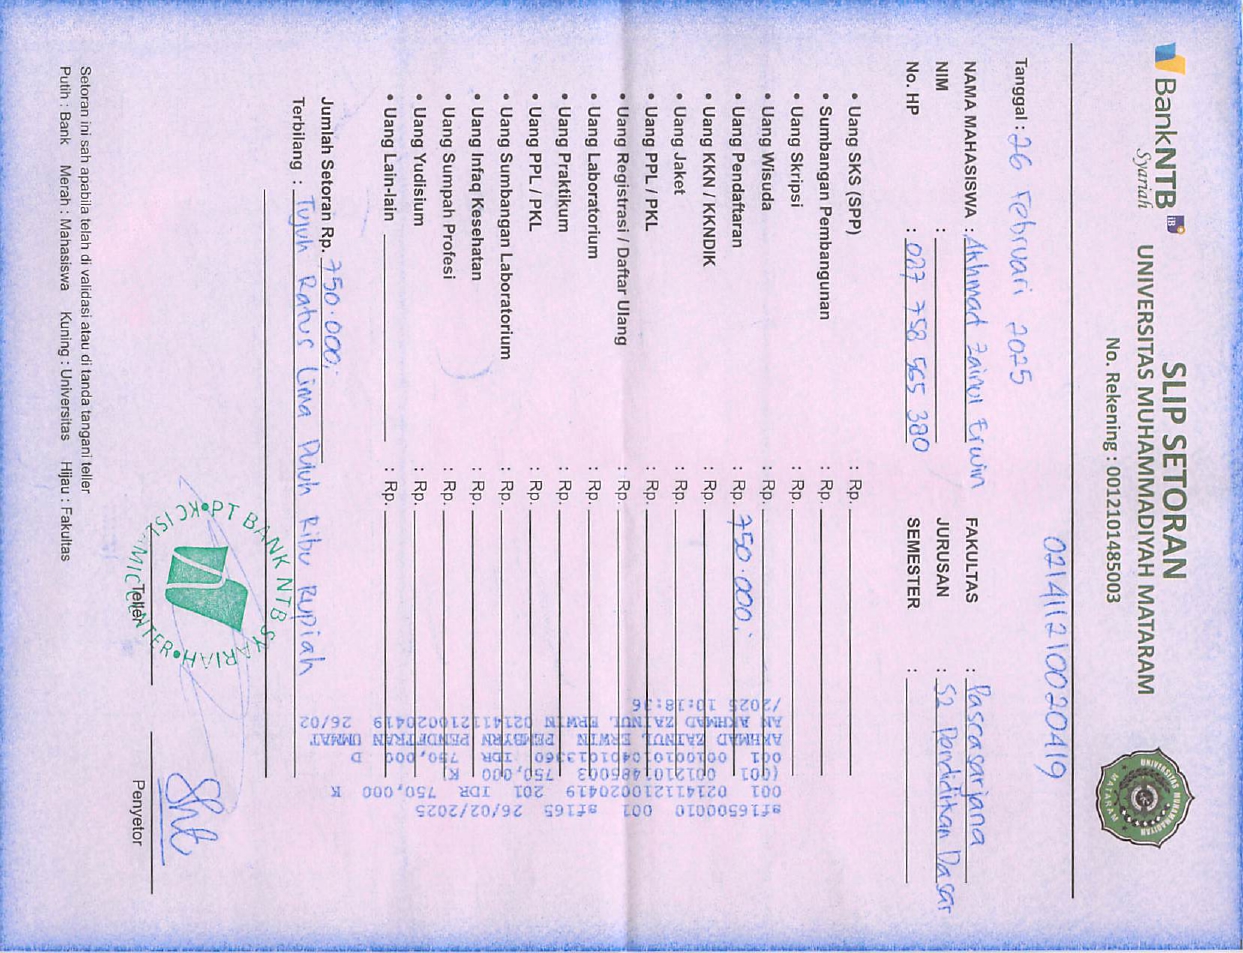 BankNTB
Syariah
SLIP SETORAN
UNIVERSITAS MUHAMMADIYAH MATARAM
No. Rekening : 0012101485003
UNIVERSITAS MUHAMMADIYAH
MATARAM
0214112100020419
Tanggal : 26 Februari 2025
NAMA MAHASISWA : Akhmad Zainul Erwin FAKULTAS : Pascasarjana
NIM : JURUSAN : S2 Pendidikan Dasar
No. HP : 087 758 565 380 SEMESTER :
• Uang SKS (SPP) : Rp.
• Sumbangan Pembangunan : Rp.
• Uang Skripsi : Rp.
• Uang Wisuda : Rp.
• Uang Pendaftaran : Rp. 750.000,-
• Uang KKN / KKNDIK : Rp.
• Uang Jaket : Rp.
• Uang PPL / PKL : Rp.
• Uang Registrasi / Daftar Ulang : Rp.
• Uang Laboratorium : Rp.
• Uang Praktikum : Rp.
• Uang PPL / PKL : Rp.
• Uang Sumbangan Laboratorium : Rp.
• Uang Infaq Kesehatan : Rp.
• Uang Sumpah Profesi : Rp.
• Uang Yudisium : Rp.
• Uang Lain-lain : Rp.
Jumlah Setoran Rp. 750.000,-
Terbilang : Tujuh Ratus Lima Puluh Ribu Rupiah
sf16500010 001 sf165 26/02/2025
001 0214112100020419 201 IDR 750,000 K
(001 0012101485003 750,000 K
001 0010010401013360 IDR 750,000 D
AKHMAD ZAINUL ERWIN PEMBYRN PENDFTRAN UMMAT
AN AKHMAD ZAINUL ERWIN 0214112100020419 26/02
/2025 10:18:36
PT BANK NTB SYARIAH
KC ISLAMIC CENTER
Teller
Penyetor
Setoran ini sah apabila telah di validasi atau di tanda tangani teller
Putih : Bank Merah : Mahasiswa Kuning : Universitas Hijau : Fakultas